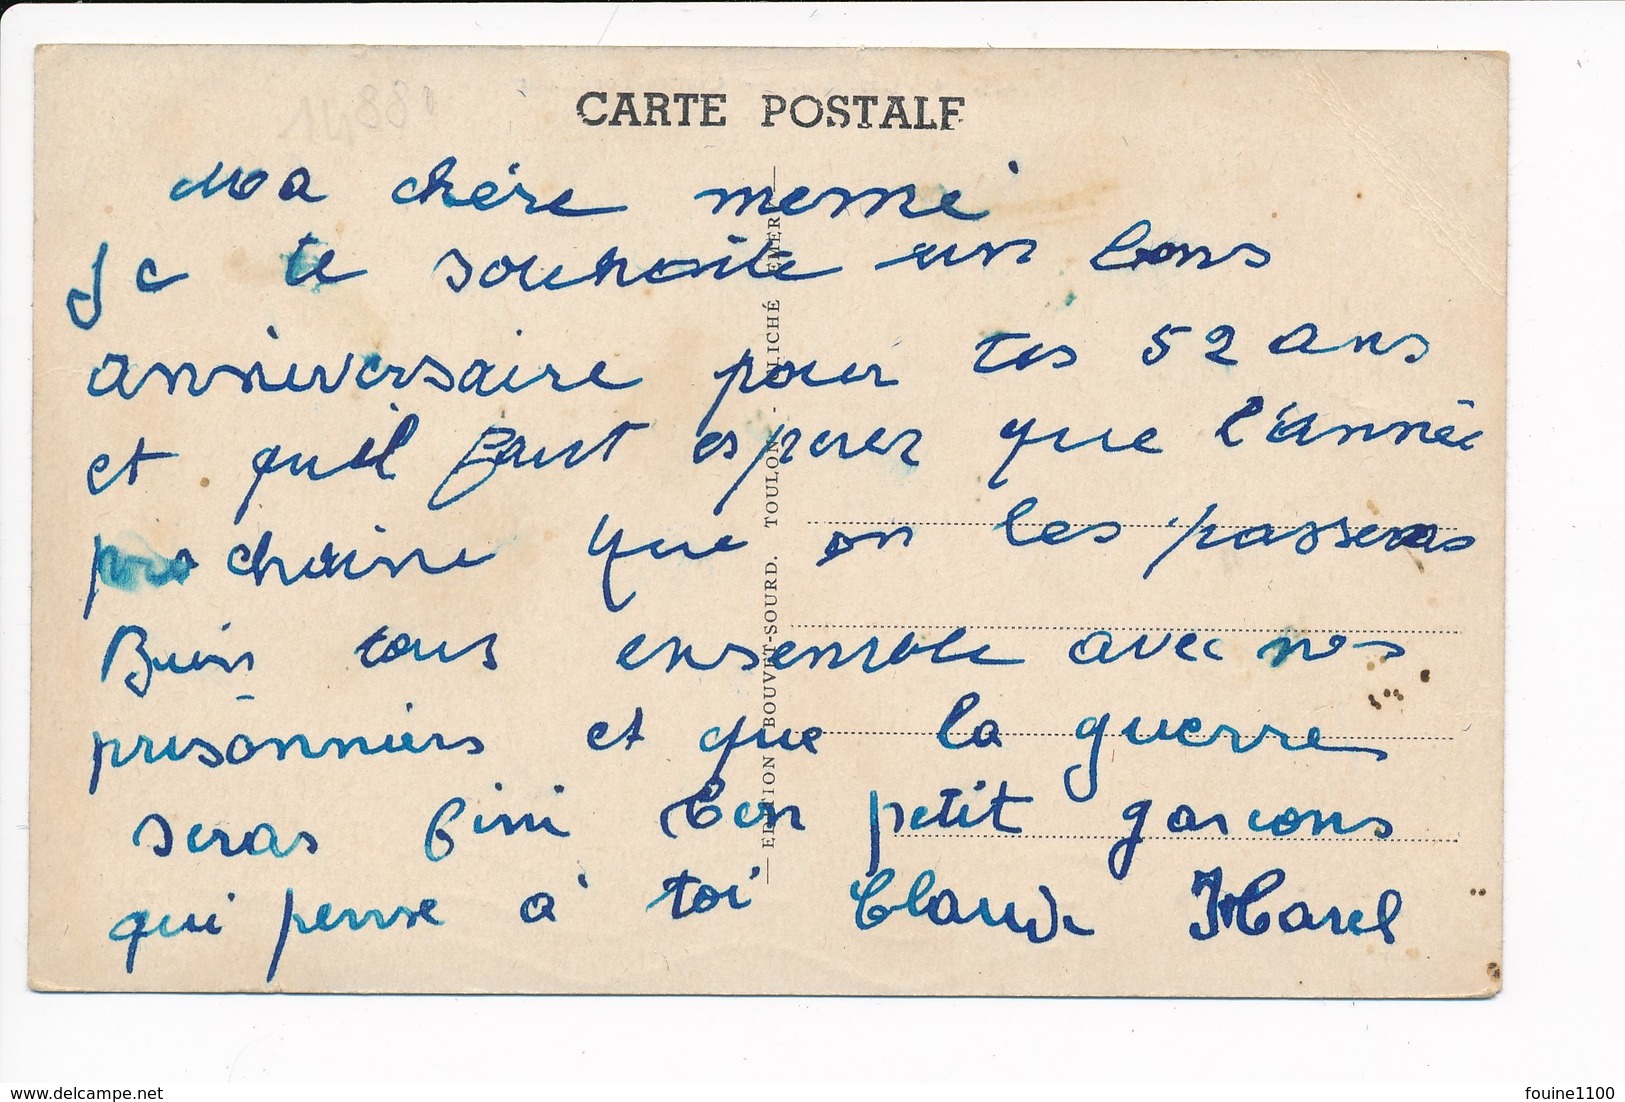 14880
CARTE POSTALE
Ma chère memé
Je te souhaite un bons
anniversaire pour tes 52 ans
et quil faut esperer que l'année
prochaine que on les passeras
Buin tous ensemble avec nos
prisonniers et que la guerre
seras fini ton petit garcons
qui pense à toi Claude Harel
EDITION BOUVET-SOURD. TOULON - CLICHÉ EMER
delcampe.net
fouine1100